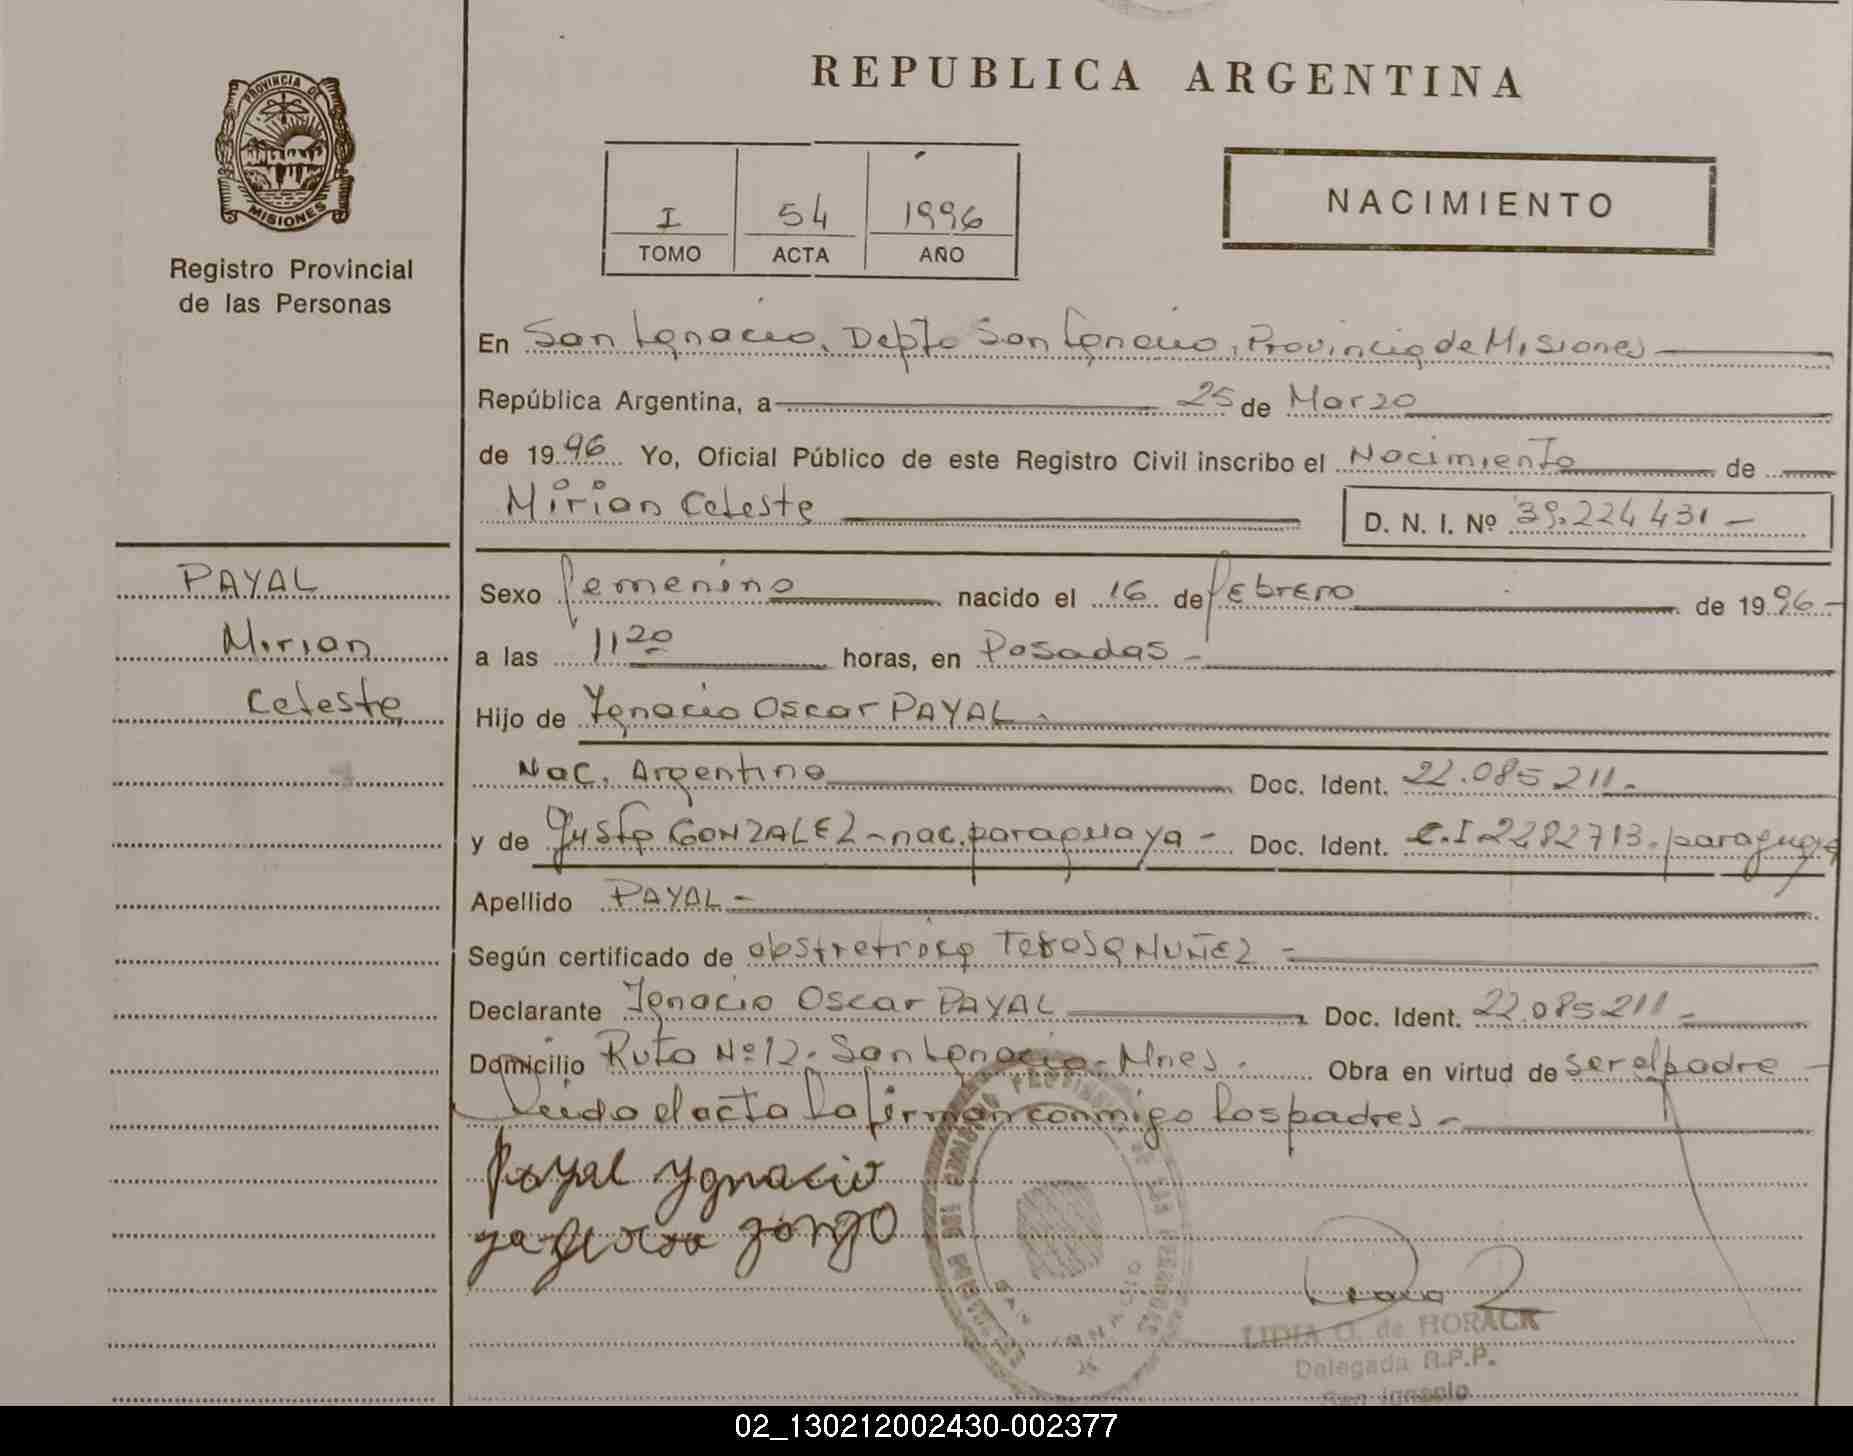 PROVINCIA DE
MISIONES
Registro Provincial
de las Personas
REPUBLICA ARGENTINA
I 54 1996
TOMO ACTA AÑO
NACIMIENTO
En San Ignacio, Depto San Ignacio, Provincia de Misiones
República Argentina, a 25 de Marzo
de 1996 Yo, Oficial Público de este Registro Civil inscribo el Nacimiento de
Mirian Celeste D. N. I. Nº 39.224431 -
PAYAL
Mirian
Celeste
Sexo femenino nacido el 16 de febrero de 1996-
a las 11 20 horas, en Posadas -
Hijo de Ygnacio Oscar PAYAL
Nac. Argentino Doc. Ident. 22.085 211-
y de GONZALEZ - nac. paraguaya - Doc. Ident. C.I 2282713. paraguaya
Apellido PAYAL -
Según certificado de obstretrica Teresa NUÑEZ -
Declarante Ignacio Oscar PAYAL Doc. Ident. 22.085211 -
Domicilio Ruta Nº 12. San Ignacio - Mnes. Obra en virtud de ser el padre -
Leida el acta la firman conmigo los padres -
Payal Ygnacio
LIDIA O. de HORACK
Delegada R.P.P.
San Ignacio
02_130212002430-002377